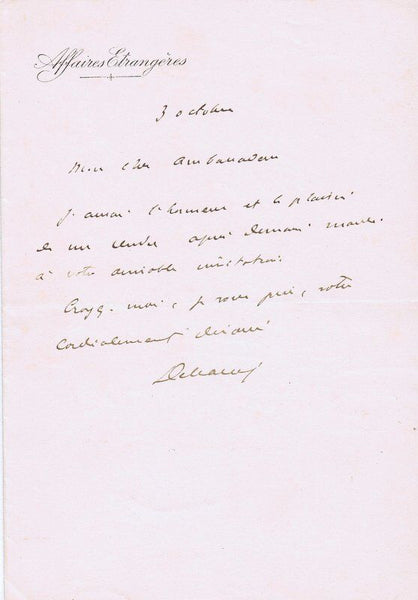 Affaires Etrangères
3 octobre
Mon cher Ambassadeur
J'aurai l'honneur et le plaisir
de me rendre après demain mardi
à votre aimable invitation.
Croyez-moi, je vous prie, votre
cordialement dévoué